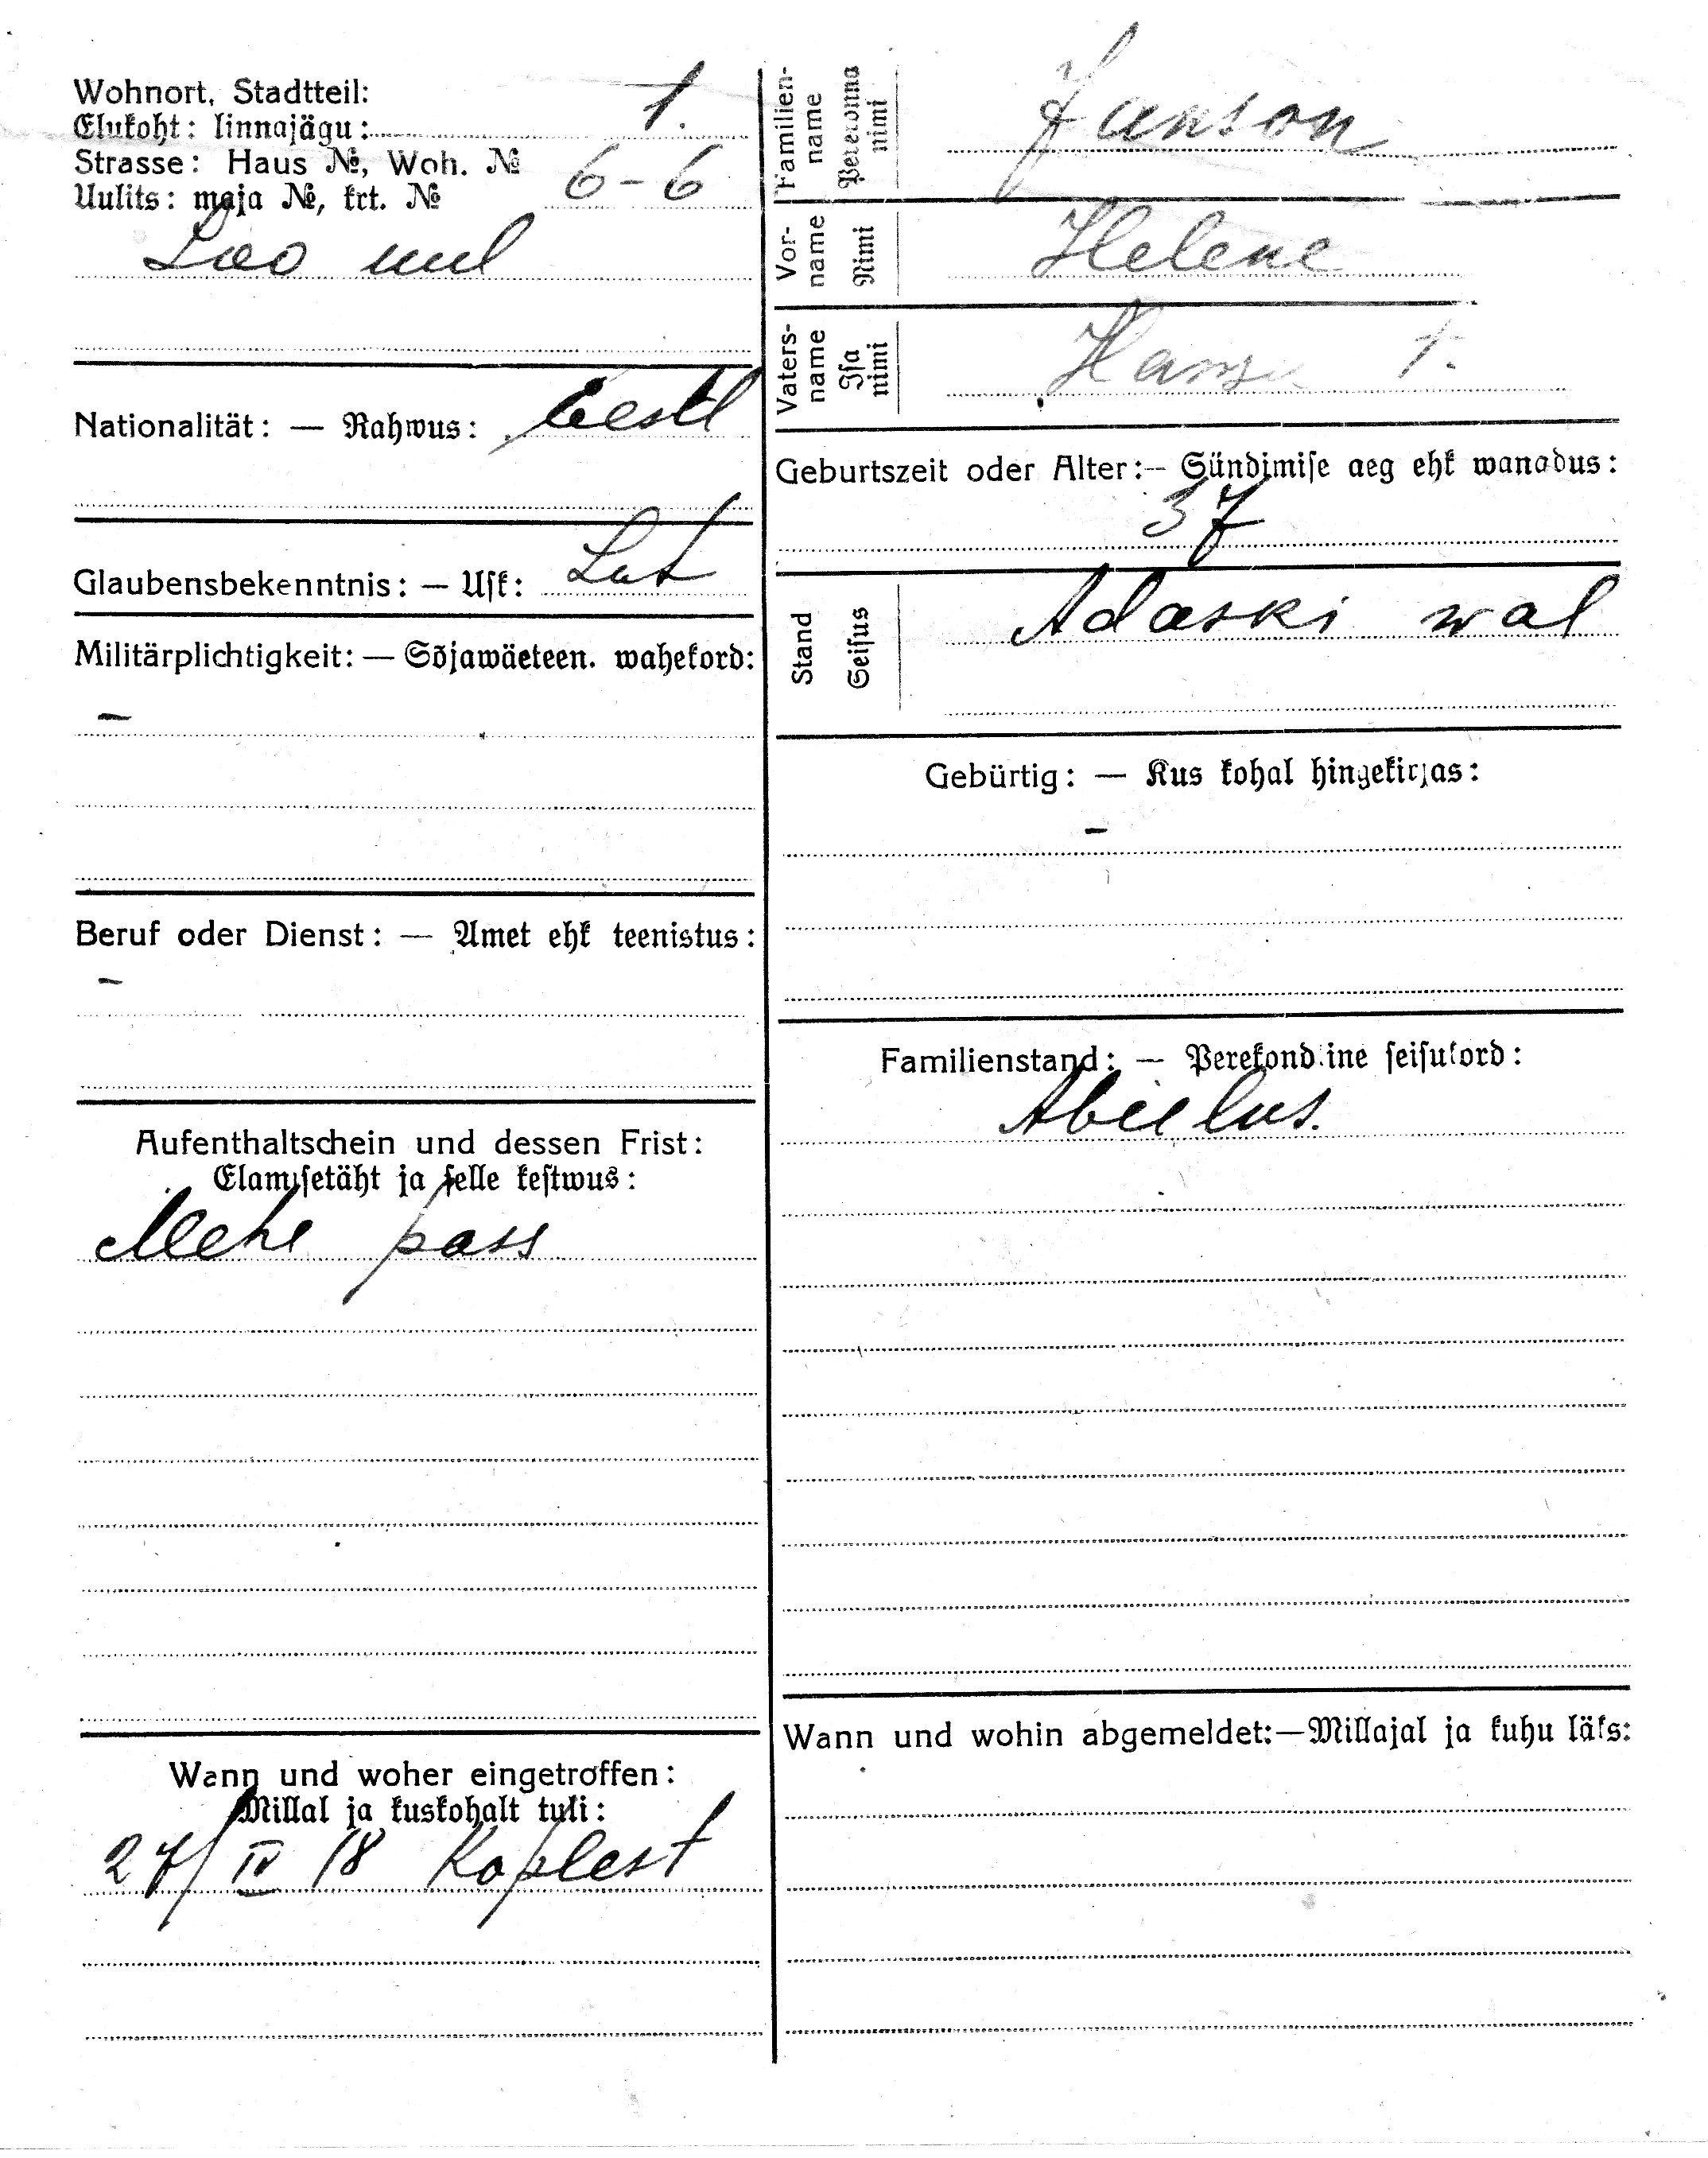 Wohnort, Stadtteil:
Elukoht: linnajägu: 1.
Strasse: Haus №, Woh. №
Uulits: maja №, krt. № 6-6
Lao uul
Nationalität: — Rahwus: Eestl
Glaubensbekenntnis: — Usk: Lut
Militärplichtigkeit: — Sõjawäeteen. wahekord:
–
Beruf oder Dienst: — Amet ehk teenistus:
–
Aufenthaltschein und dessen Frist:
Elamisetäht ja selle kestwus:
Mehe pass
Wann und woher eingetroffen:
Millal ja kuskohalt tuli:
27/IV 18 Koplest
Familien-
name
Perekonna
nimi
Janson
Vor-
name
Nimi
Helene
Vaters-
name
Isa
nimi
Hansu t.
Geburtszeit oder Alter:— Sündimise aeg ehk wanadus:
37
Stand
Seisus
Adaski wal
Gebürtig: — Kus kohal hingekirjas:
–
Familienstand: — Perekondline seisukord:
Abielus.
Wann und wohin abgemeldet:—Millajal ja kuhu läks: